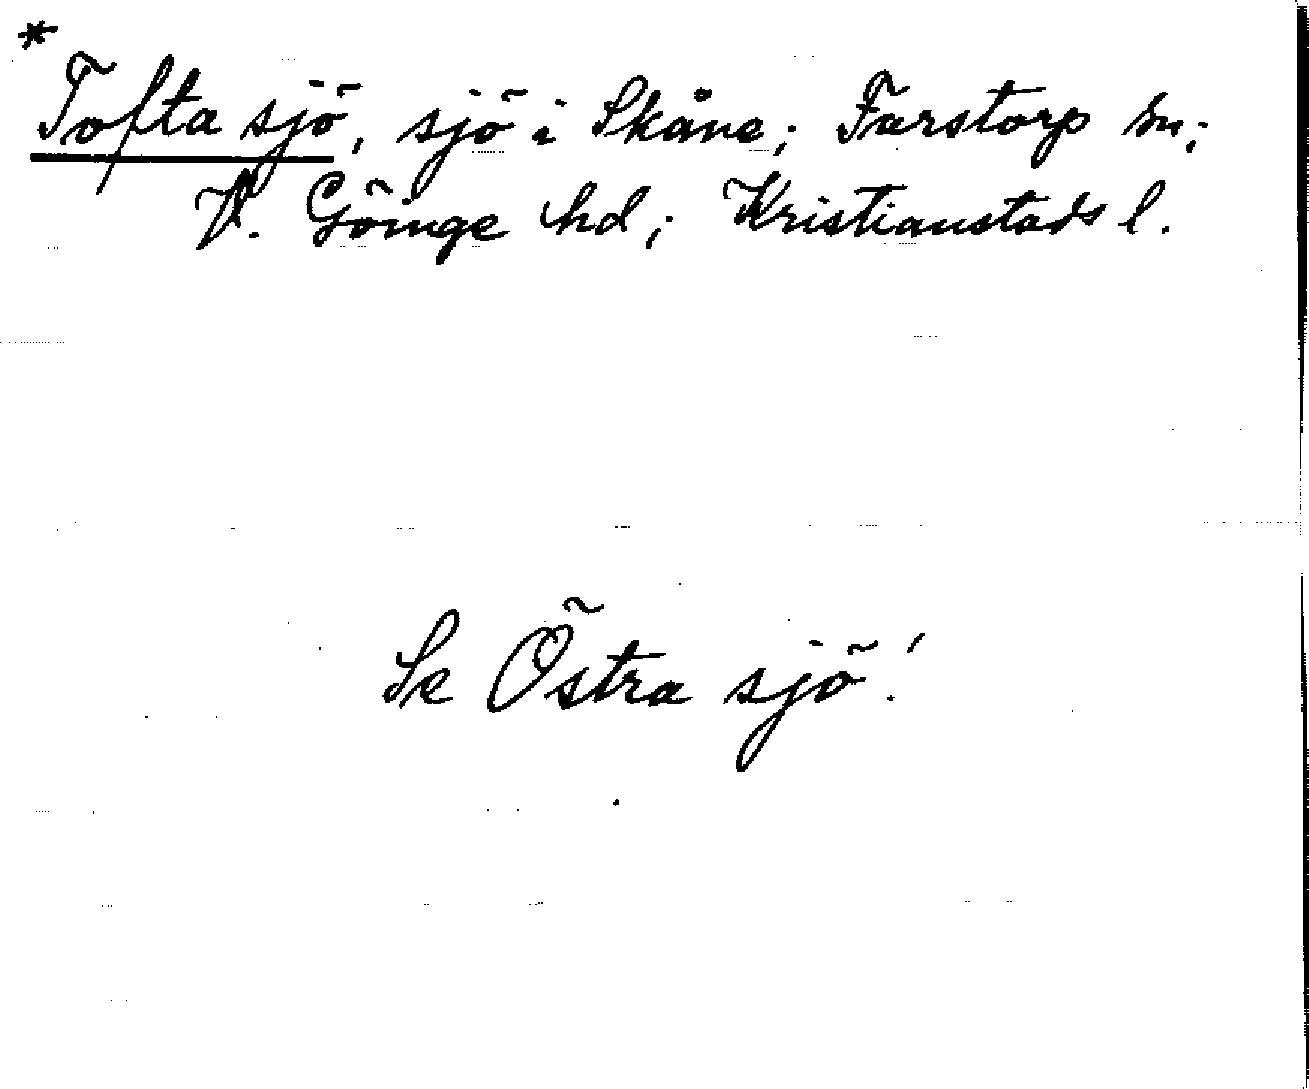 *
Tofta sjö, sjö i Skåne; Farstorp sn;
V. Göinge hd; Kristianstads l.
Se Östra sjö!